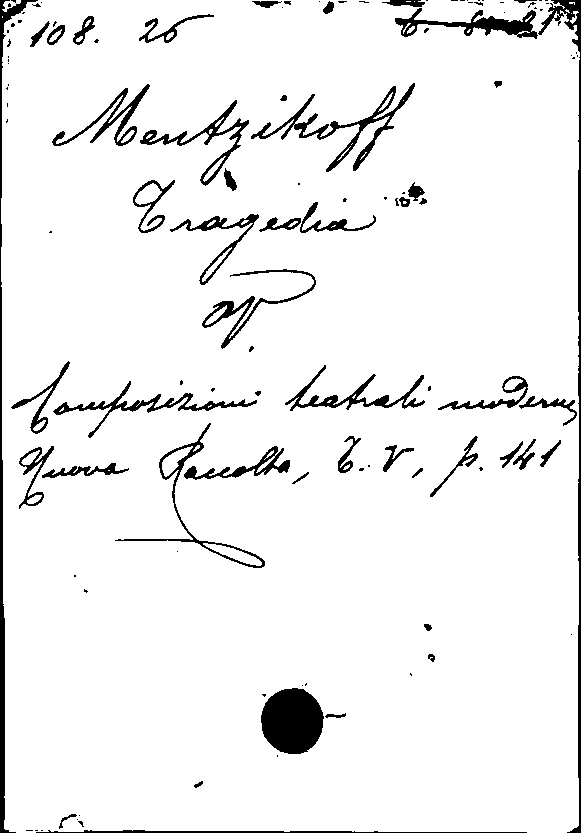 108. 26
Mentzikoff
Tragedia
Composizioni teatrali moderne,
Nuova Raccolta, T. V, p. 141